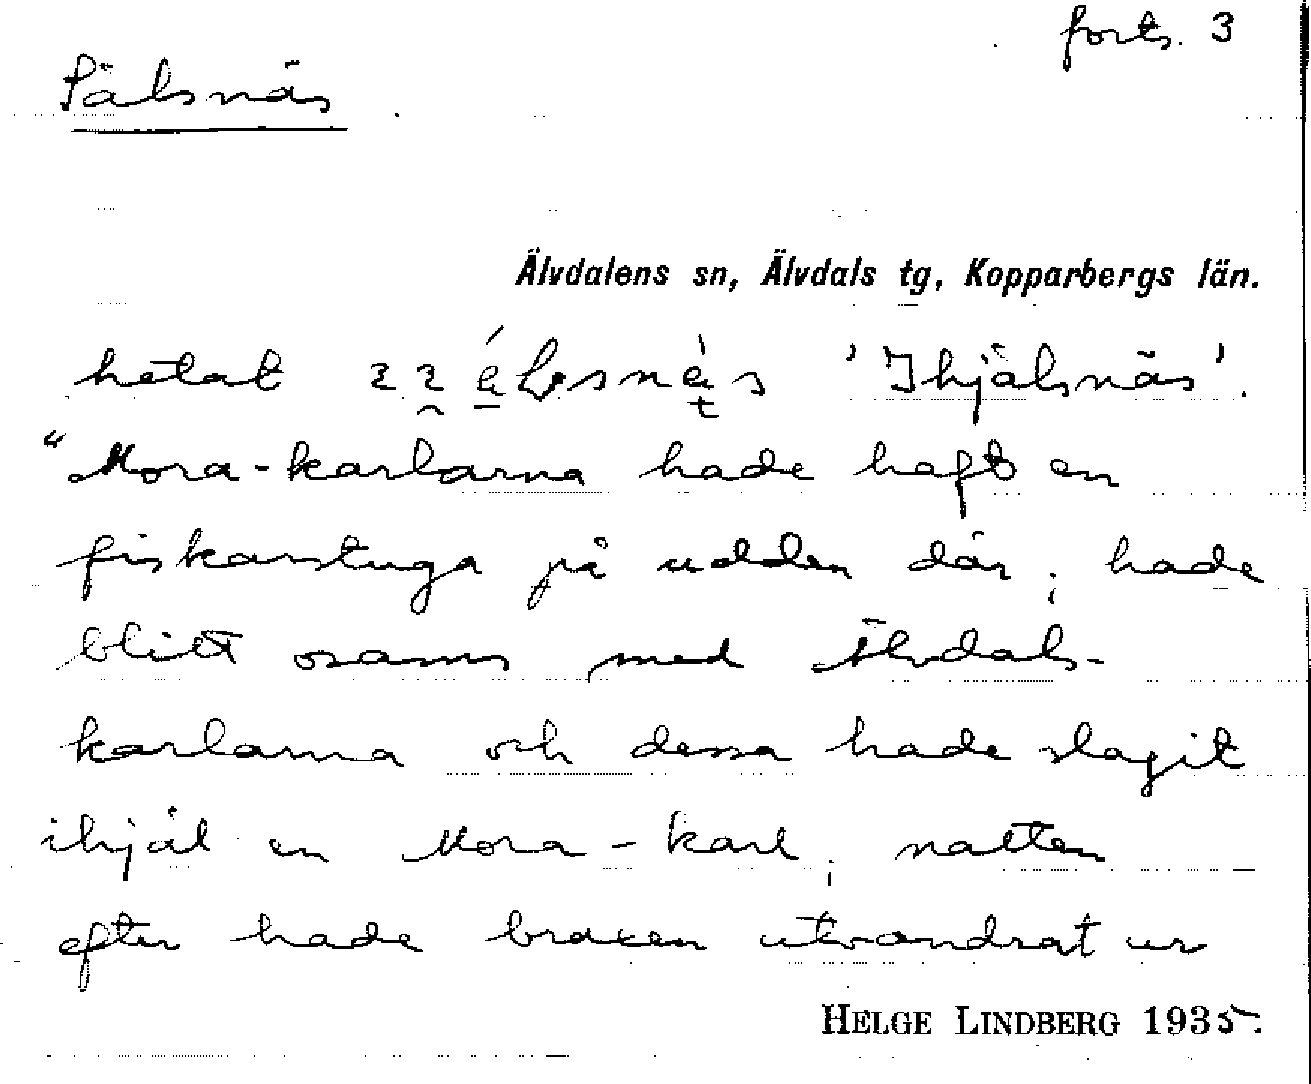 forts. 3
Pälsnäs
Älvdalens sn, Älvdals tg, Kopparbergs län.
hetat 'Ihjälsnäs'.
"Mora-karlarna hade haft en
fiskarstuga på udden där; hade
blivit osams med Älvdals-
karlarna och dessa hade slagit
ihjäl en Mora-karl; natten
efter hade braxen utvandrat ur
HELGE LINDBERG 1935.